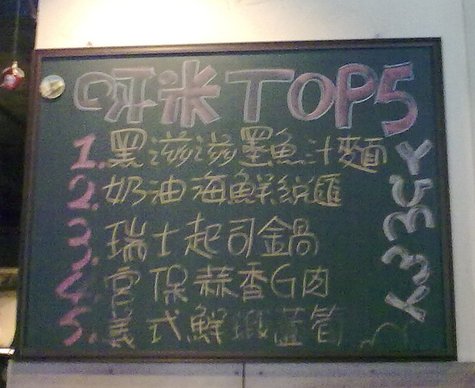 呀米TOP5
1.黑滋滋墨魚汁麵
2.奶油海鮮總匯
3.瑞士起司鍋
4.宮保蒜香G肉
5.義式鮮蝦蘆筍